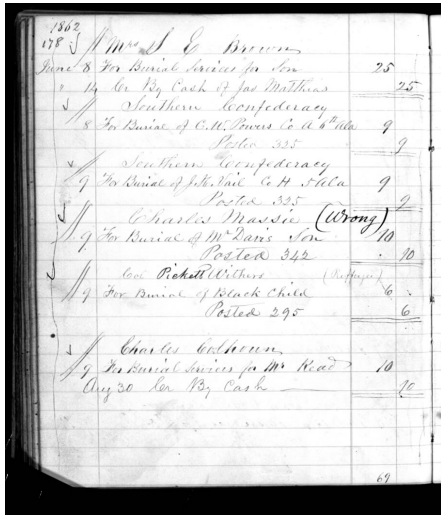 1862
178 // Mrs S E Brown
June 8 For Burial Services for Son 25
" 14 Cr By Cash of Jas Matthias 25
// Southern Confederacy
8 For Burial of C. H. Powers Co A 6th Ala 9
Posted 325 9
// Southern Confederacy
9 For Burial of J. H. Vail Co H 5 Ala 9
Posted 325 9
// Charles Massie (Wrong)
9 For Burial of Mr Davis Son 10
Posted 342 10
// Col Pickett Withers
9 For Burial of Black Child 6
Posted 295 6
// Charles Colhoun
9 For Burial Services for Mr Read 10
Aug 30 Cr By Cash 10
69